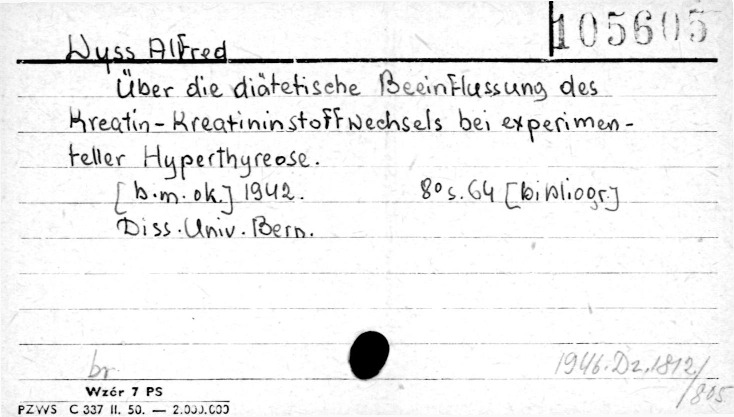 105605
Wyss Alfred
Über die diätetische Beeinflussung des
Kreatin-Kreatininstoffwechsels bei experimen-
teller Hyperthyreose.
[b.m.ok.] 1942. 8° s. 64 [bibliogr.]
Diss. Univ. Bern.
br 1946. Dz. 1812/805
Wzór 7 PS
PZWS C 337 II. 50. — 2.000.000